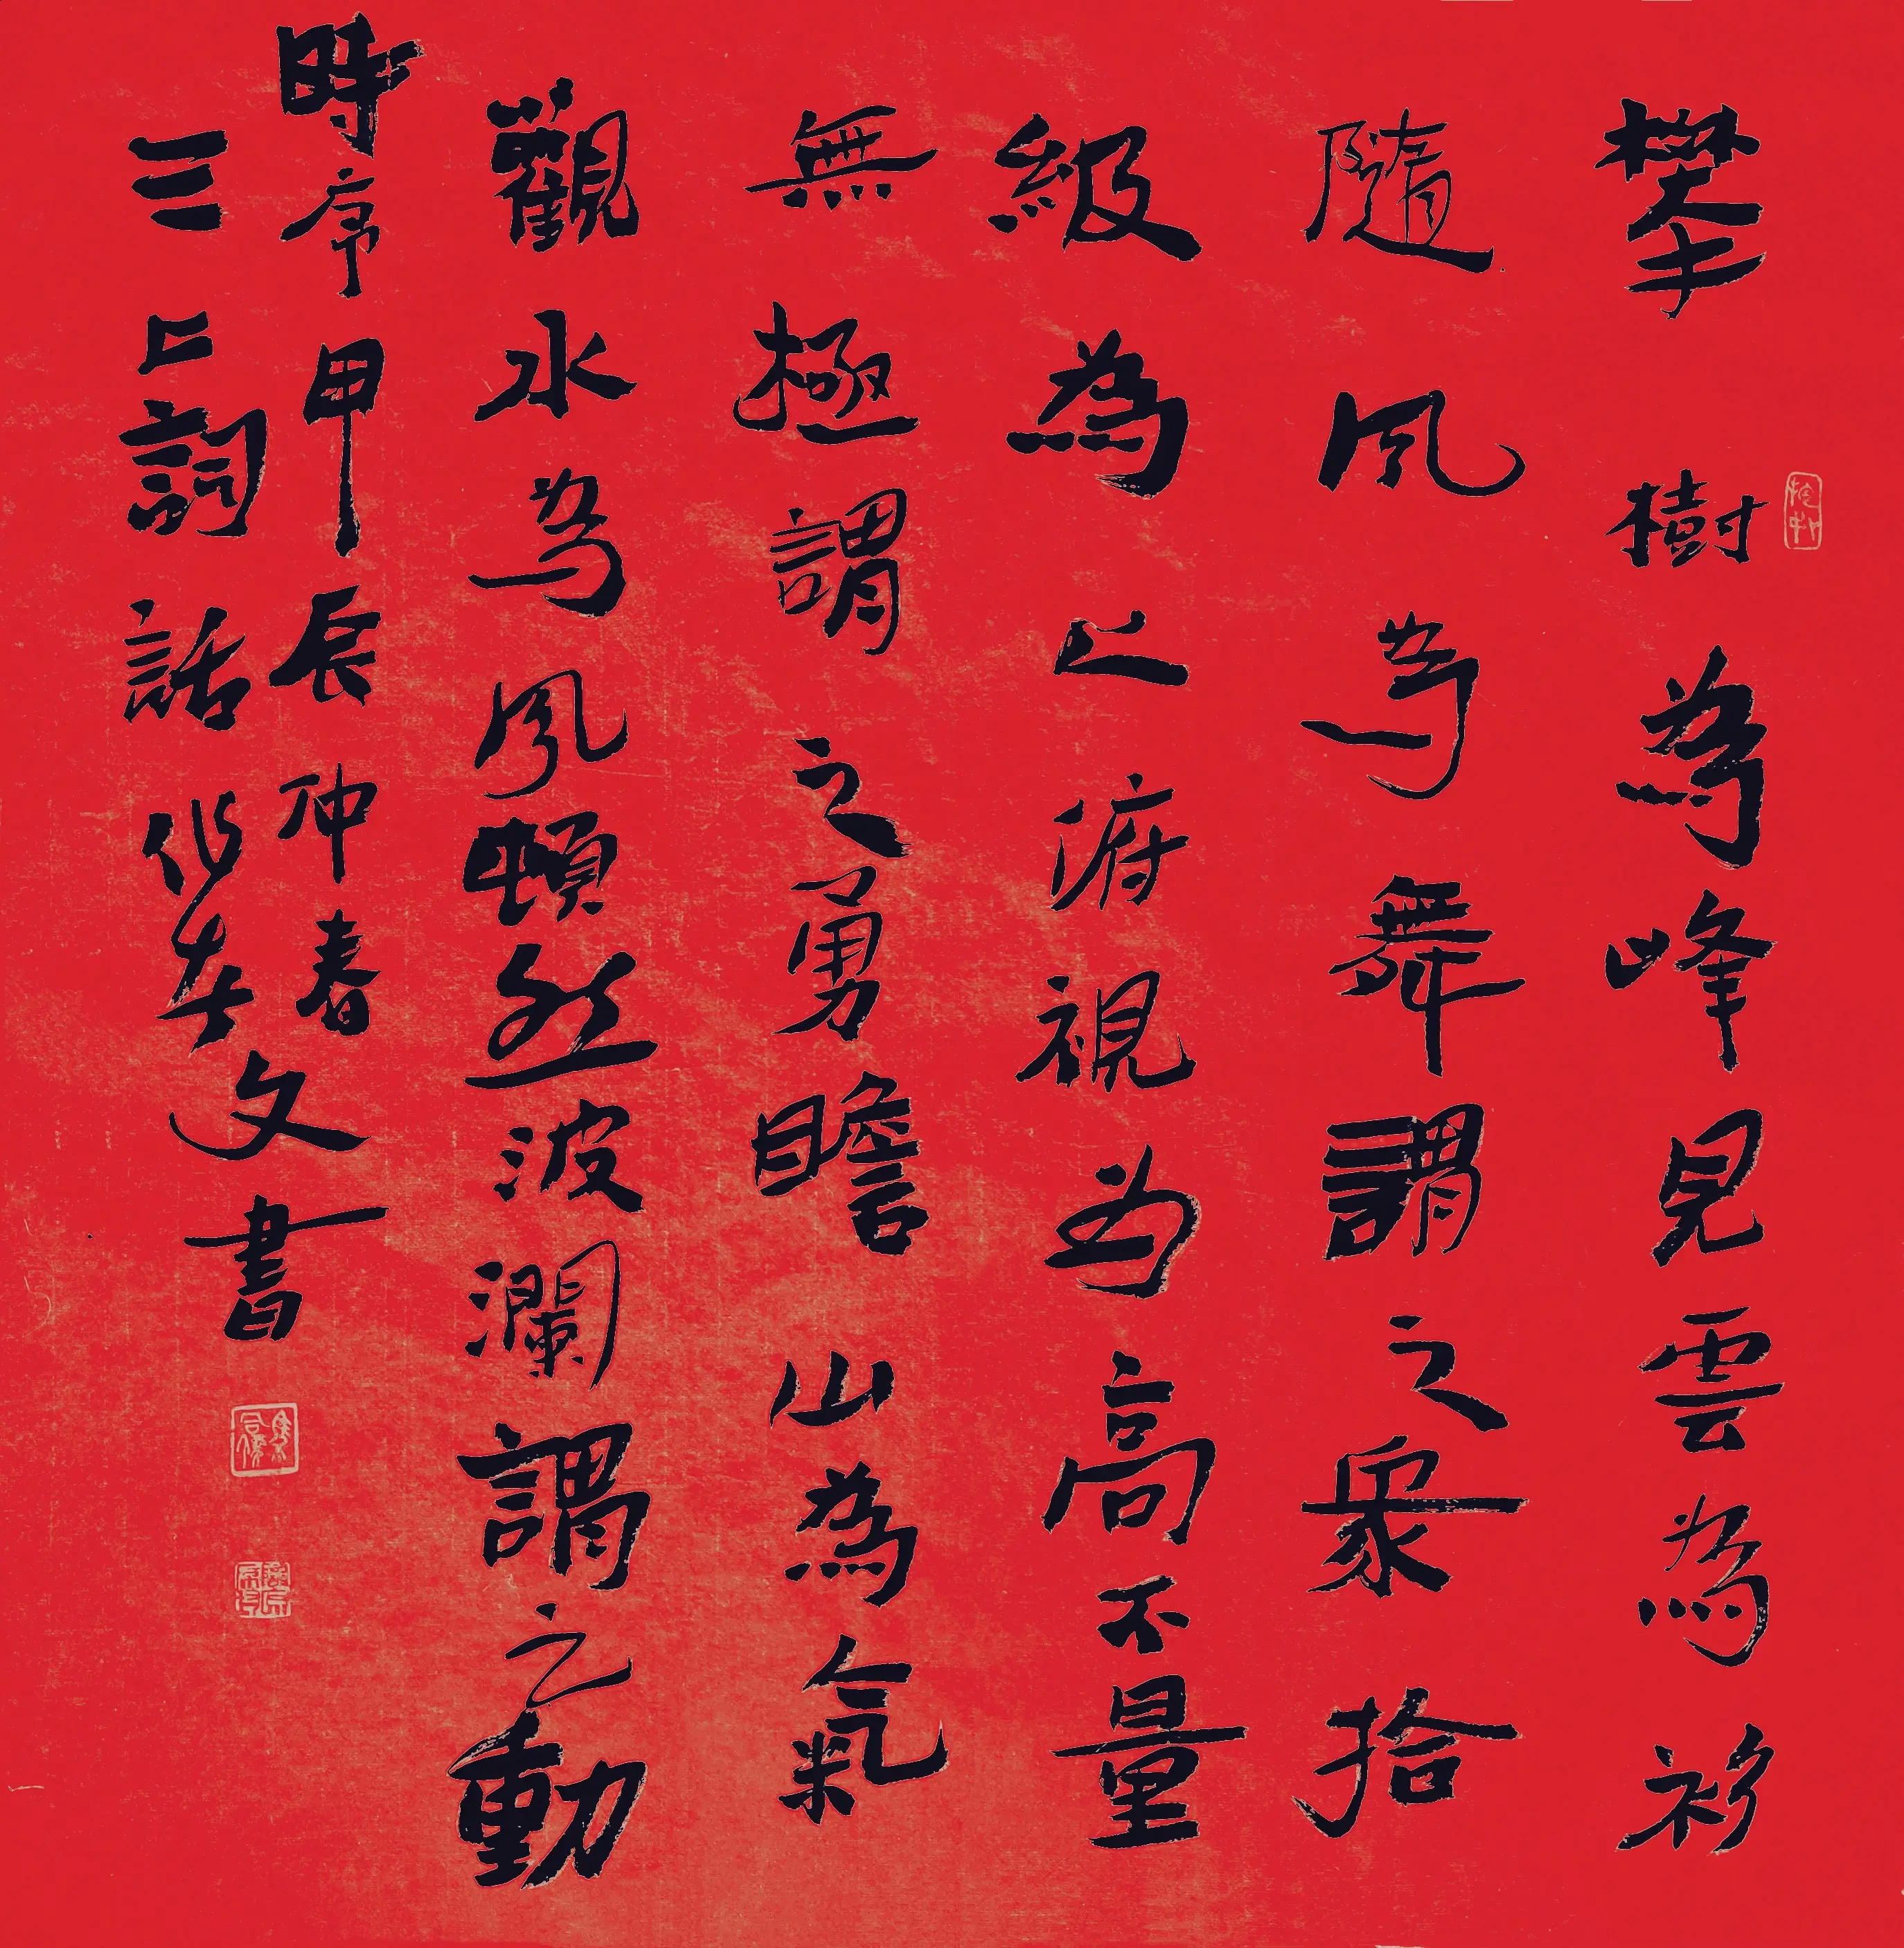 攀樹為峰見雲為衫
隨風為舞謂之眾拾
級為上俯視為高不量
無極謂之勇瞻山為氣
觀水為風頓然波瀾謂之動
時序甲辰仲春
三上詞話
文書